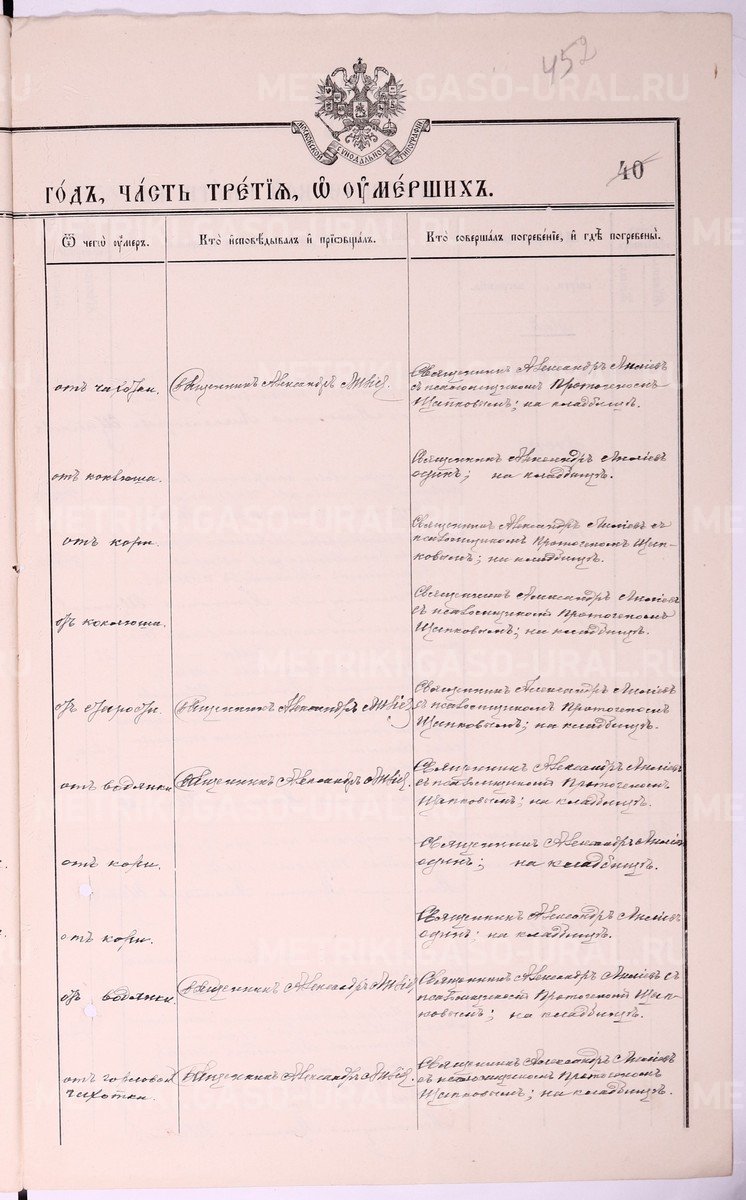 452
МОСКОВСКОЙ СѴНОДАЛЬНОЙ ТИПОГРАФІИ
40
ГО́ДЪ, ЧА́СТЬ ТРЕ́ТІЯ, Ѡ҆ ОУ҆МЕ́РШИХЪ.
Ѿ чегѡ̀ оу҆́меръ.
Кто̀ и҆сповѣ́дывалъ и҆ прїѡбща́лъ.
Кто̀ соверша́лъ погребе́нїе, и҆ гдѣ̀ погребены̀.
отъ чахотки.
Священникъ Александръ
Священникъ Александръ
съ псаломщикомъ Протогеномъ
Щапковымъ; на кладбищѣ.
отъ коклюша.
Священникъ Александръ
одинъ; на кладбищѣ.
отъ кори.
Священникъ Александръ съ
псаломщикомъ Протогеномъ Щап-
ковымъ; на кладбищѣ.
отъ коклюша.
Священникъ Александръ
съ псаломщикомъ Протогеномъ
Щапковымъ; на кладбищѣ.
отъ старости.
Священникъ Александръ
Священникъ Александръ
съ псаломщикомъ Протогеномъ
Щапковымъ; на кладбищѣ.
отъ водянки
Священникъ Александръ
Священникъ Александръ
съ псаломщикомъ Протогеномъ
Щапковымъ; на кладбищѣ.
отъ кори.
Священникъ Александръ
одинъ; на кладбищѣ.
отъ кори.
Священникъ Александръ
одинъ; на кладбищѣ.
отъ водянки.
Священникъ Александръ
Священникъ Александръ съ
псаломщикомъ Протогеномъ Щап-
ковымъ; на кладбищѣ.
отъ горловой
чахотки.
Священникъ Александръ
Священникъ Александръ
съ псаломщикомъ Протогеномъ
Щапковымъ; на кладбищѣ.
METRIKI.GASO-URAL.RU